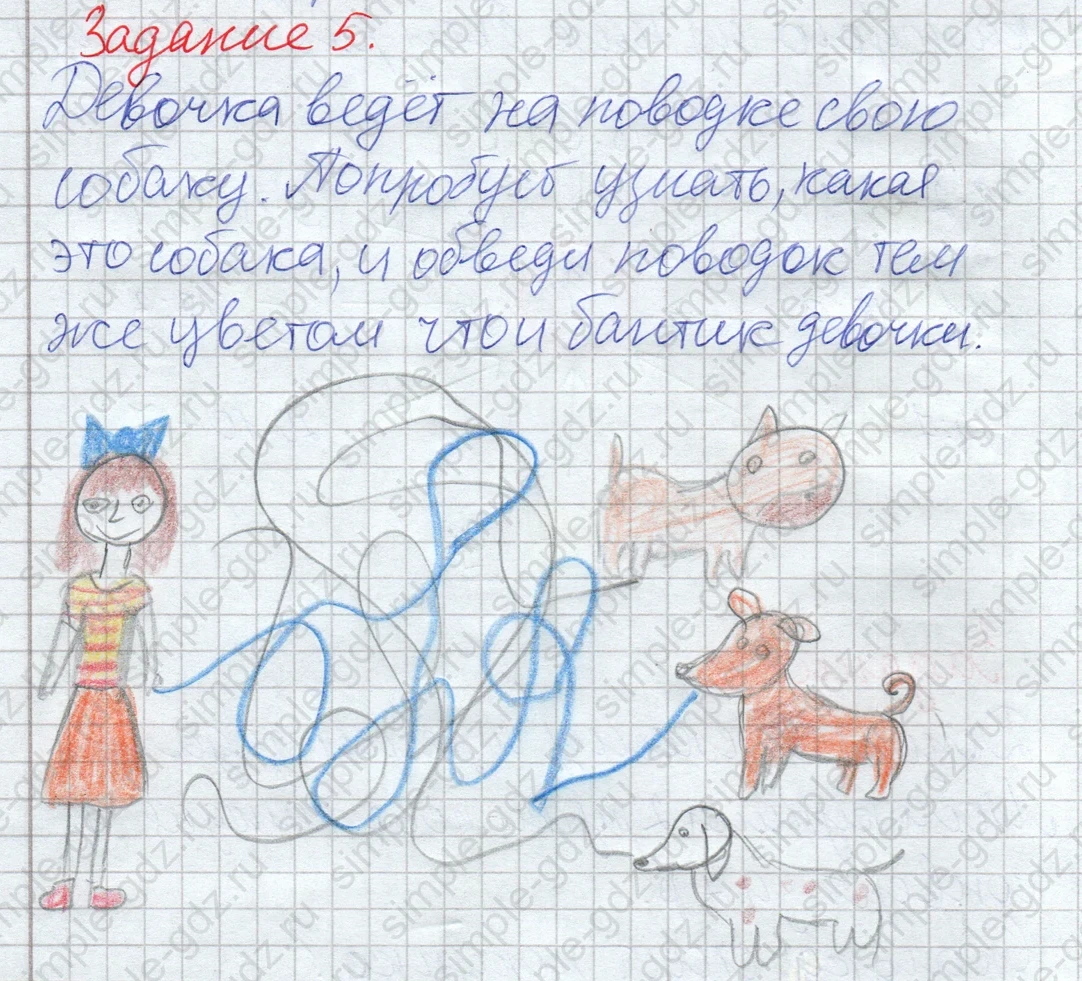 Задание 5.
Девочка ведёт на поводке свою
собаку. Попробуй узнать, какая
это собака, и обведи поводок тем
же цветом что и бантик девочки.
simple-gdz.ru